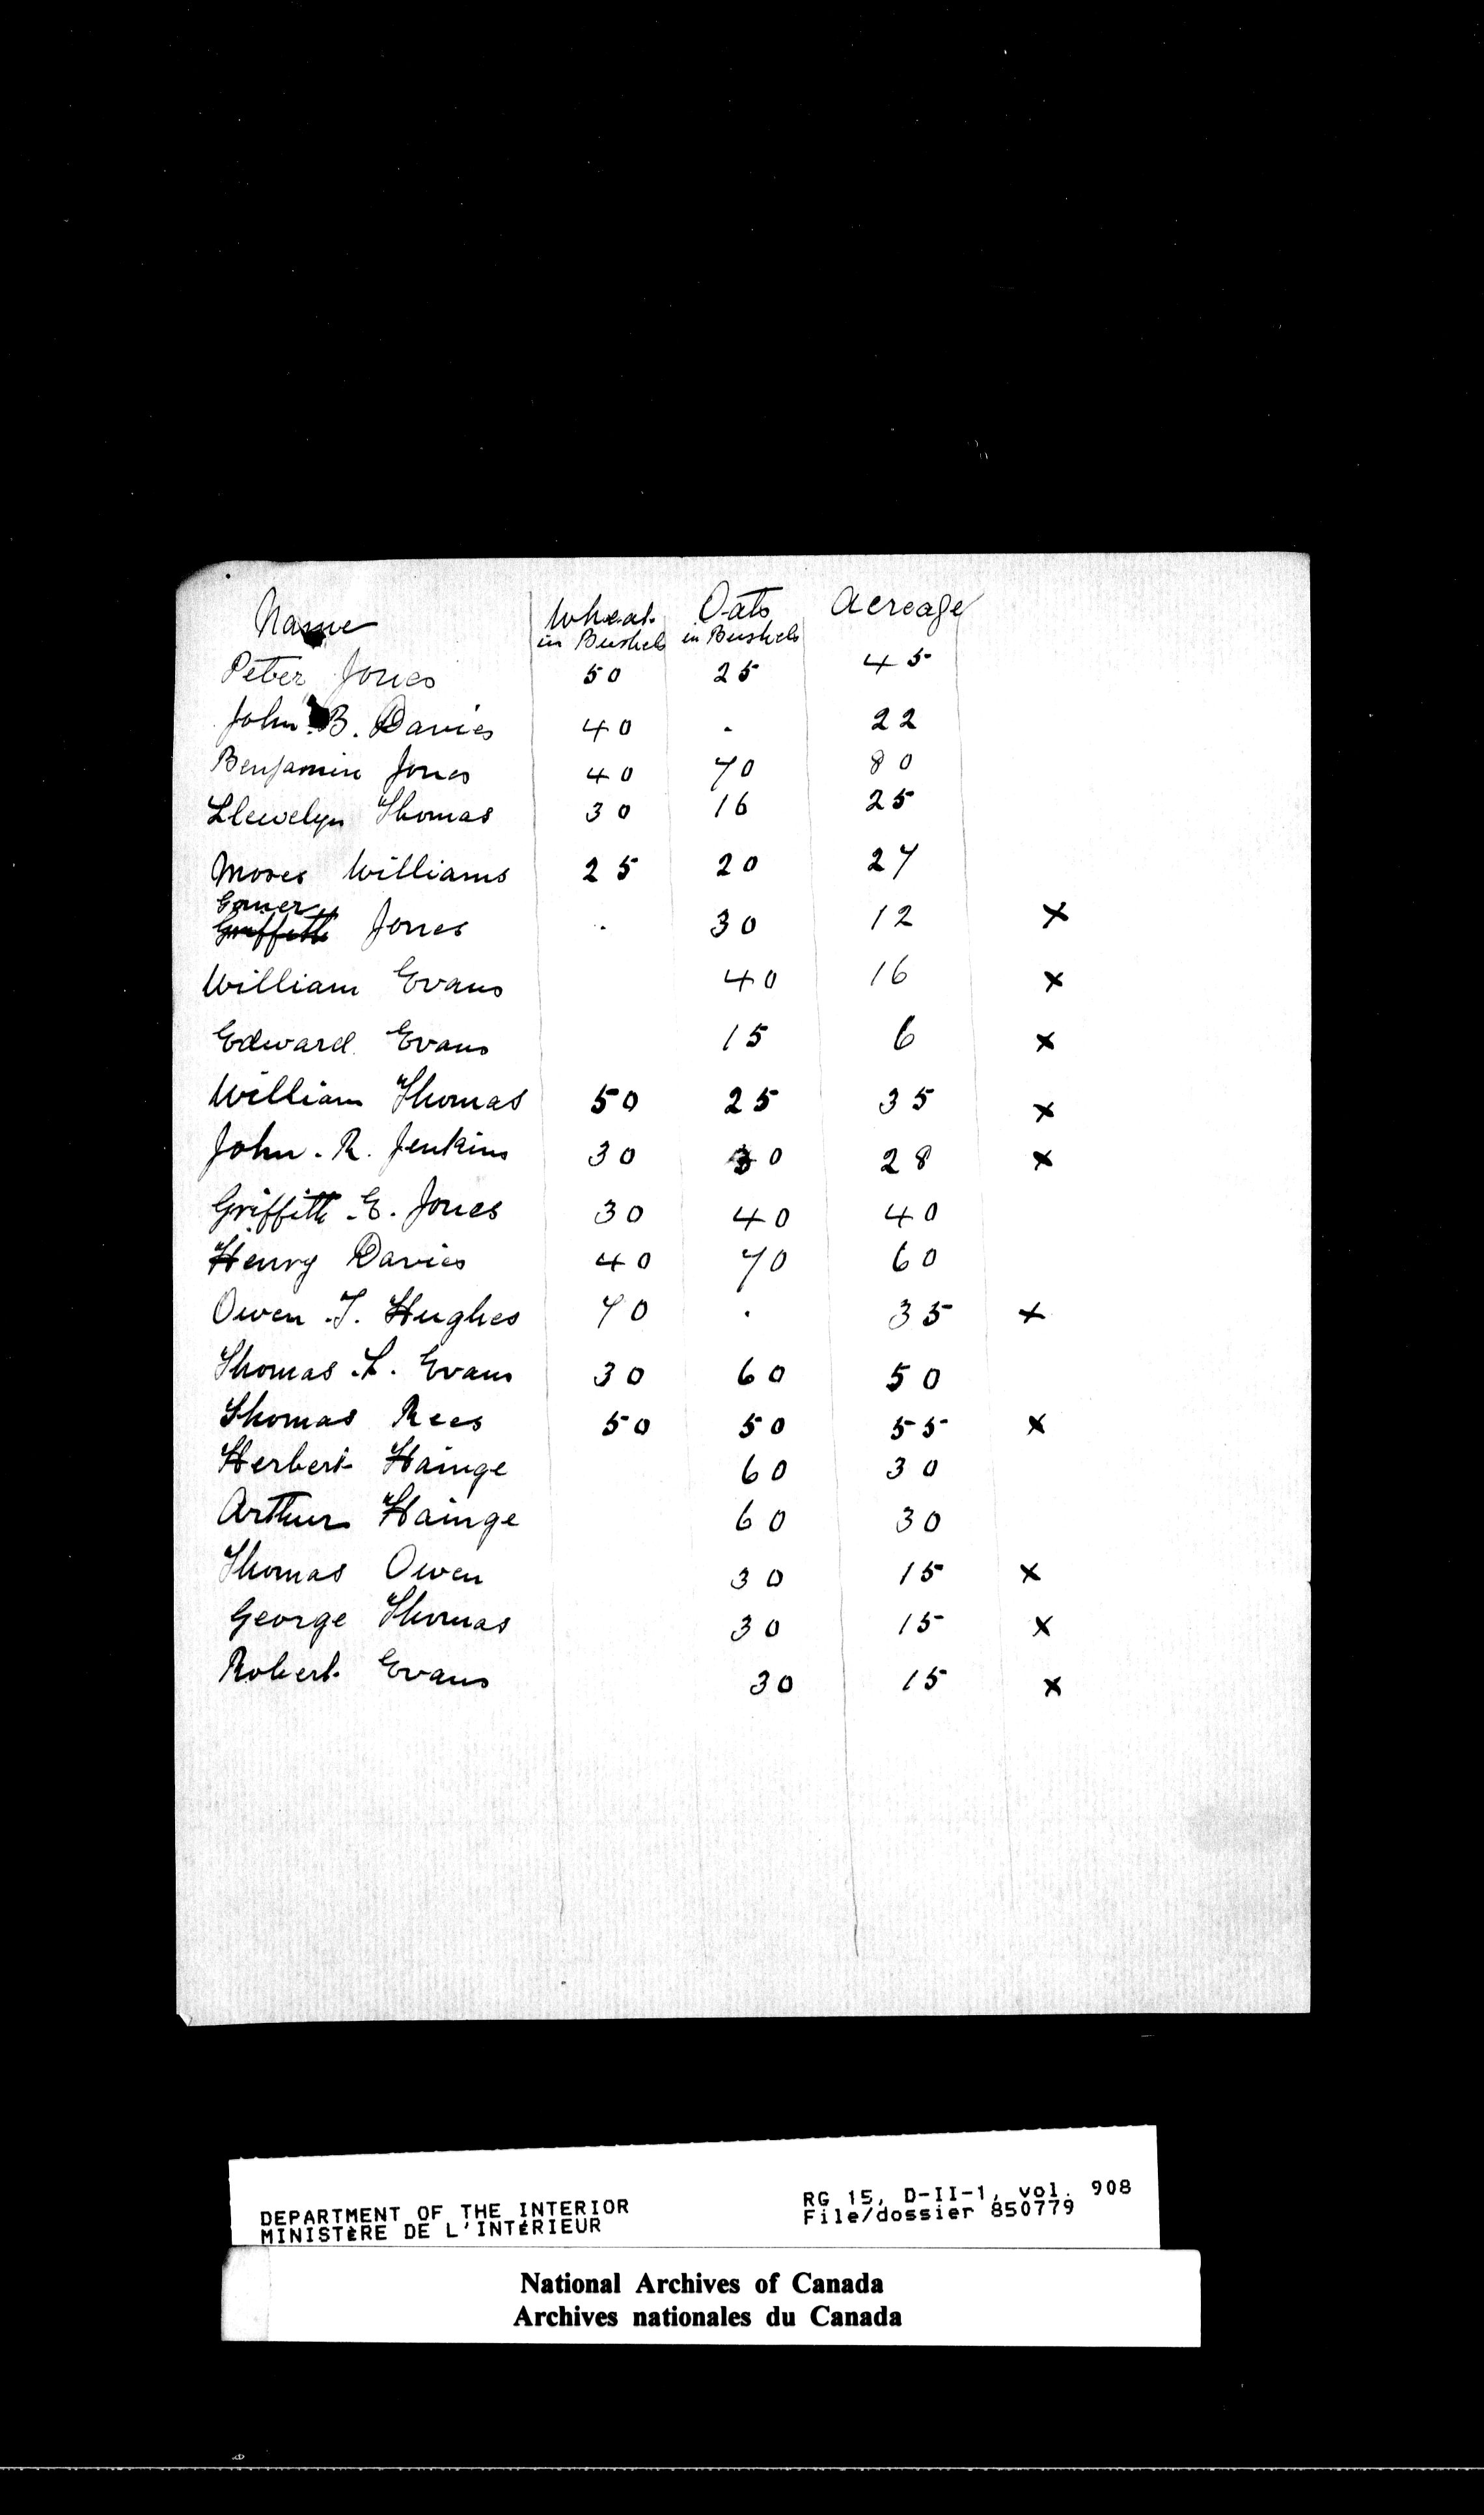 Name Wheat Oats Acreage
in Bushels in Bushels
Peter Jones 50 25 45
John B. Davies 40 . 22
Benjamin Jones 40 70 80
Llewelyn Thomas 30 16 25
Moses Williams 25 20 27
Gomer
Griffith Jones . 30 12 x
William Evans 40 16 x
Edward Evans 15 6 x
William Thomas 50 25 35 x
John. R. Jenkins 30 30 28 x
Griffith. E. Jones 30 40 40
Henry Davies 40 70 60
Owen .T. Hughes 70 . 35 x
Thomas .L. Evans 30 60 50
Thomas Rees 50 50 55 x
Herbert Hainge 60 30
Arthur Hainge 60 30
Thomas Owen 30 15 x
George Thomas 30 15 x
Robert Evans 30 15 x
DEPARTMENT OF THE INTERIOR RG 15, D-II-1, vol. 908
MINISTÈRE DE L'INTÉRIEUR File/dossier 850779
National Archives of Canada
Archives nationales du Canada